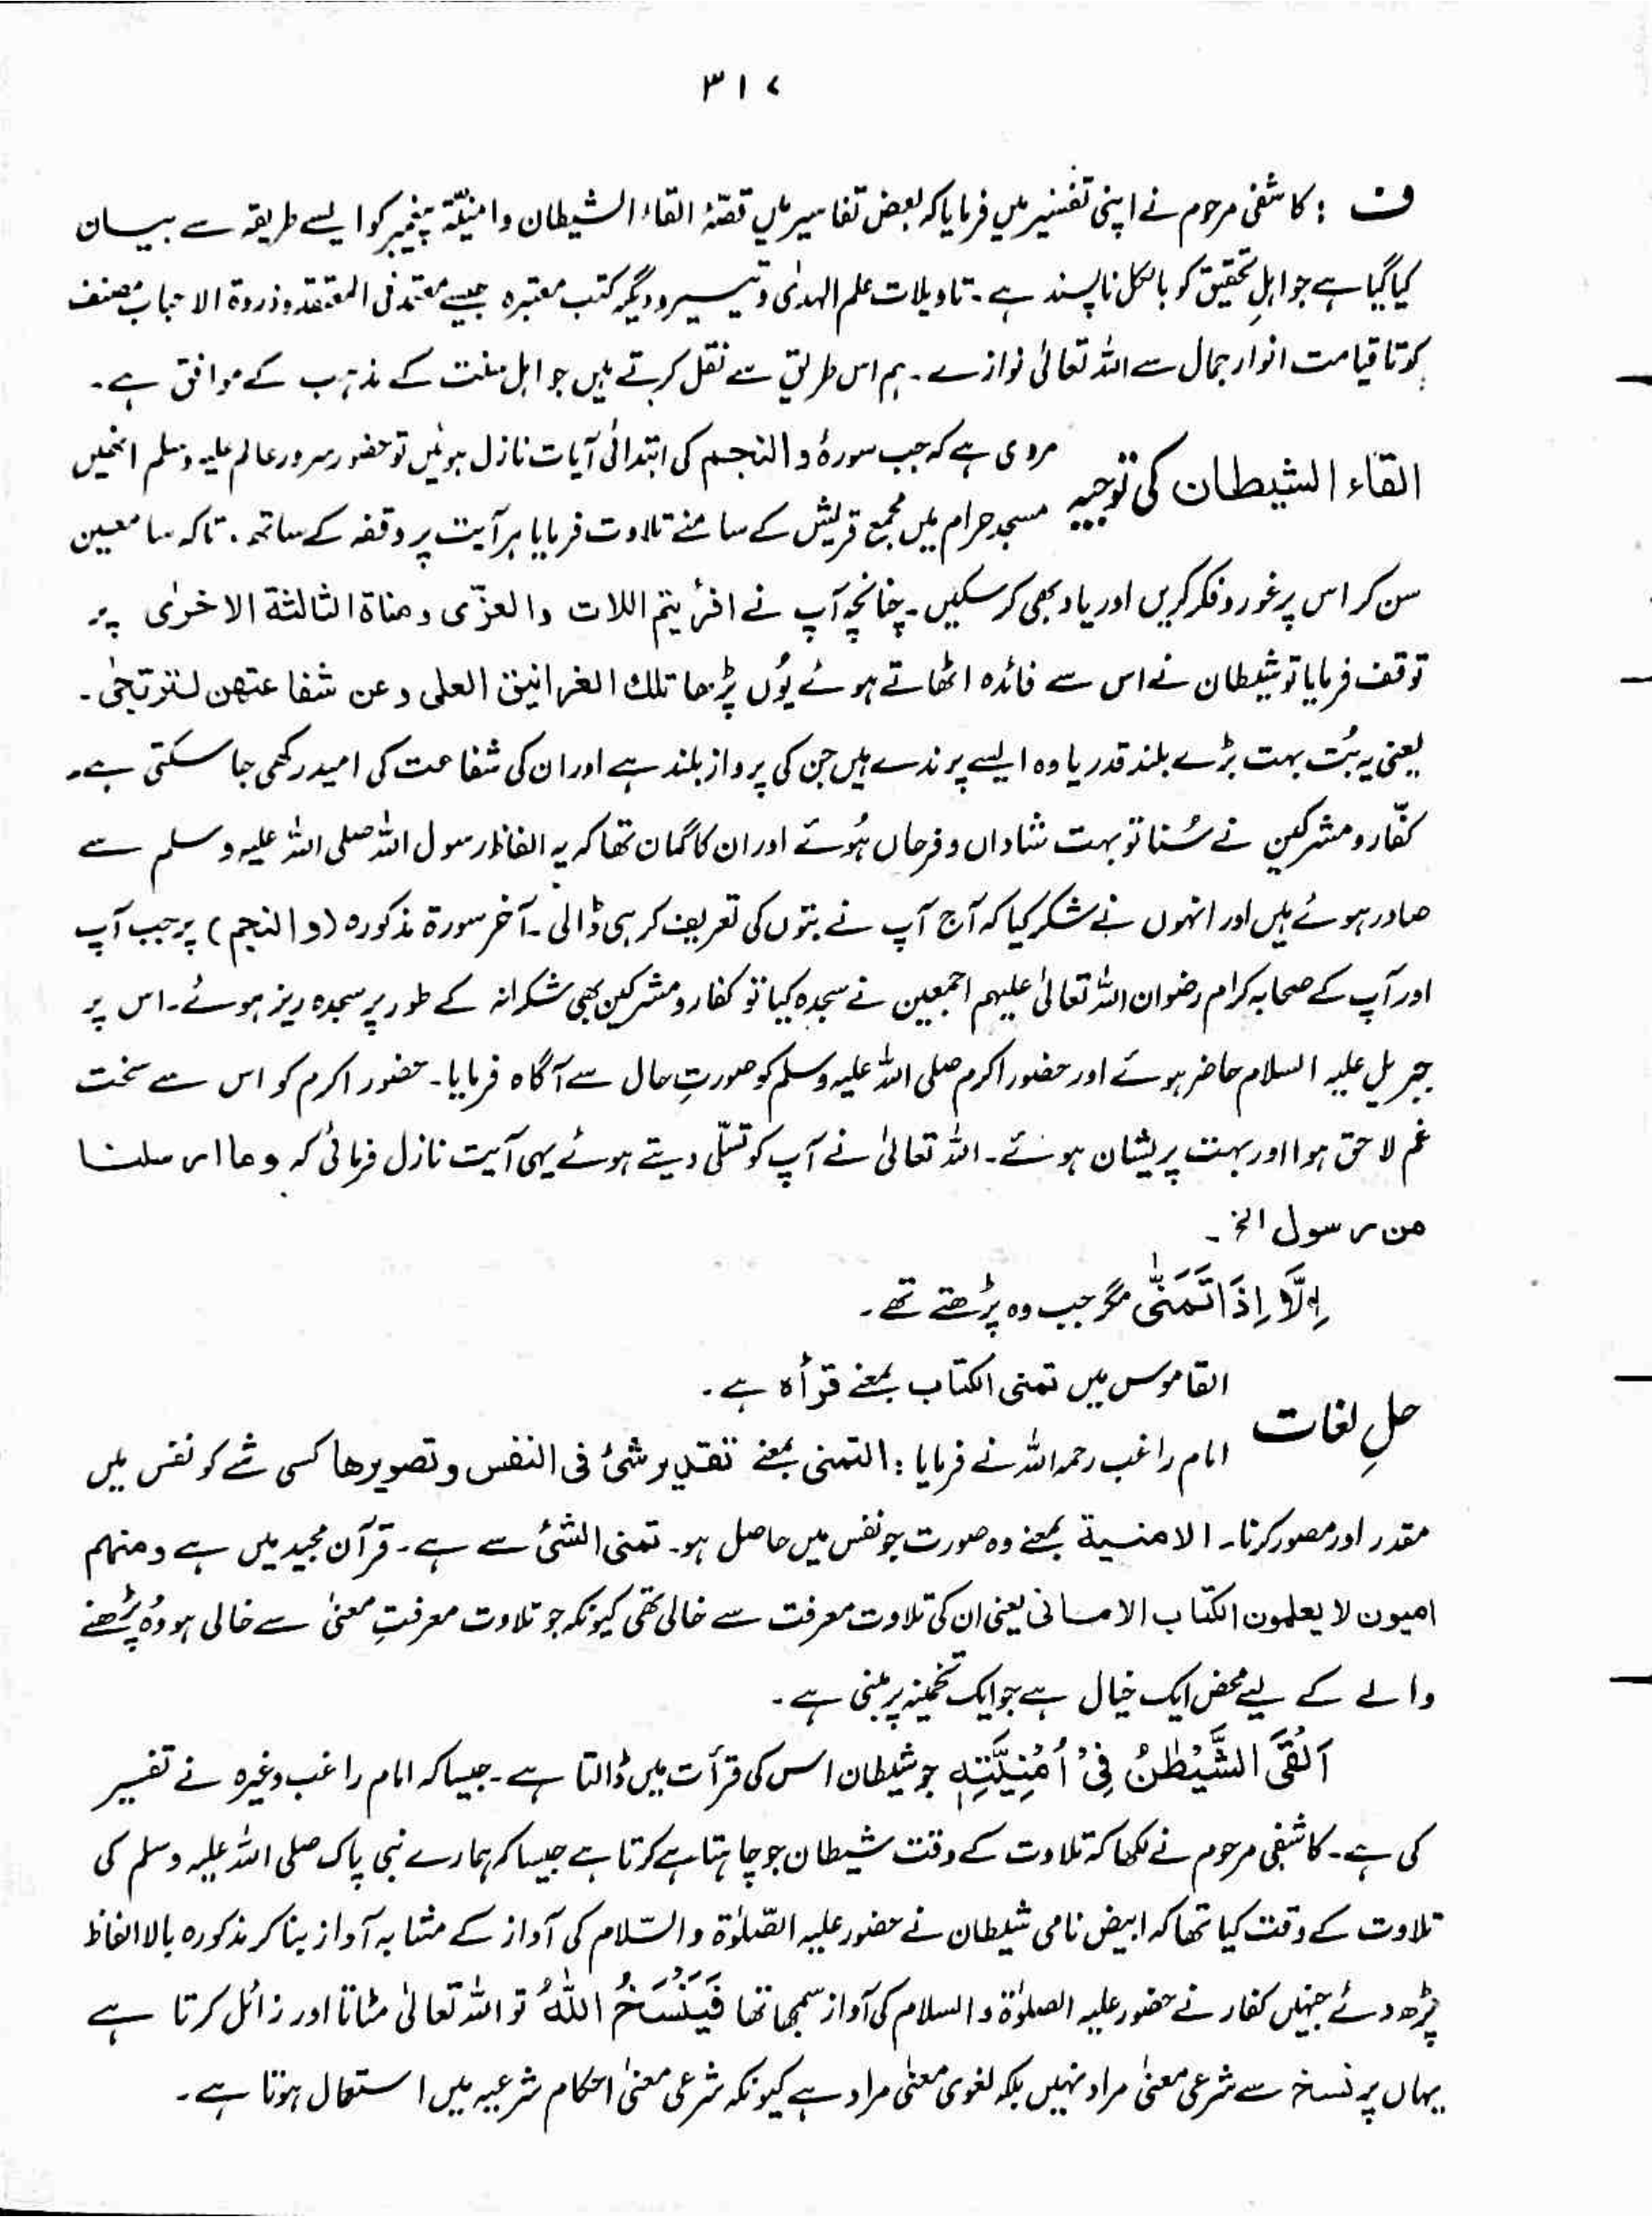 ۳۱۷
ف : کاشفی مرحوم نے اپنی تفسیر میں فرمایا کہ بعض تفاسیر میں قصّۂ القاء الشیطان و امنیّۃ پیغمبر کو ایسے طریقہ سے بیان
کیا گیا ہے جو اہلِ تحقیق کو بالکل ناپسند ہے۔ تاویلات علم الہدیٰ و تیسیر و دیگر کتب معتبرہ جیسے معتمد فی المعتقد و ذروۃ الاحباب مصنف
کو تا قیامت انوار جمال سے اللہ تعالیٰ نوازے۔ ہم اس طریق سے نقل کرتے ہیں جو اہل سنت کے مذہب کے موافق ہے۔
القاء الشیطان کی توجیہ
مروی ہے کہ جب سورۂ والنجم کی ابتدائی آیات نازل ہوئیں تو حضور سرور عالم علیہ وسلم انھیں
مسجد حرام میں مجمع قریش کے سامنے تلاوت فرمایا ہر آیت پر وقفہ کے ساتھ، تاکہ سامعین
سن کر اس پر غور و فکر کریں اور یاد بھی کر سکیں۔ چنانچہ آپ نے افرئیتم اللات والعزّی ومناۃ الثالثۃ الاخرٰی پر
توقف فرمایا تو شیطان نے اس سے فائدہ اٹھاتے ہوئے یُوں پڑھا تلك الغرانیق العلی وعن شفاعتھن لترتجیٰ۔
یعنی یہ بُت بہت بڑے بلند قدر یا وہ ایسے پرندے ہیں جن کی پرواز بلند ہے اور ان کی شفاعت کی امید رکھی جا سکتی ہے۔
کفّار و مشرکین نے سُنا تو بہت شاداں و فرحاں ہُوئے اور ان کا گمان تھا کہ یہ الفاظ رسول اللہ صلی اللہ علیہ وسلم سے
صادر ہوئے ہیں اور انہوں نے شکر کیا کہ آج آپ نے بتوں کی تعریف کر ہی ڈالی۔ آخر سورۃ مذکورہ (والنجم) پر جب آپ
اور آپ کے صحابہ کرام رضوان اللہ تعالیٰ علیہم اجمعین نے سجدہ کیا تو کفار و مشرکین بھی شکرانہ کے طور پر سجدہ ریز ہوئے۔ اس پر
جبریل علیہ السلام حاضر ہوئے اور حضور اکرم صلی اللہ علیہ وسلم کو صورتِ حال سے آگاہ فرمایا۔ حضور اکرم کو اس سے سخت
غم لاحق ہوا اور بہت پریشان ہوئے۔ اللہ تعالیٰ نے آپ کو تسلّی دیتے ہوئے یہی آیت نازل فرمائی کہ وما ارسلنا
من رسول الخ۔
اِلَّا اِذَا تَمَنّٰی مگر جب وہ پڑھتے تھے۔
حلِ لغات
القاموس میں تمنی الکتاب بمعنے قرأہ ہے۔
امام راغب رحمہ اللہ نے فرمایا : التمنی بمعنے تقدیر شیٔ فی النفس و تصویرھا کسی شے کو نفس میں
مقدر اور مصور کرنا۔ الامنیۃ بمعنے وہ صورت جو نفس میں حاصل ہو۔ تمنی الشیٔ سے ہے۔ قرآن مجید میں ہے ومنہم
امیون لا یعلمون الکتاب الا امانی یعنی ان کی تلاوت معرفت سے خالی تھی کیونکہ جو تلاوت معرفتِ معنیٰ سے خالی ہو وُہ پڑھنے
والے کے لیے محض ایک خیال ہے جو ایک تخمینہ پر مبنی ہے۔
اَلْقَی الشَّیْطٰنُ فِیْ اُمْنِیَّتِہٖ جو شیطان اس کی قرأت میں ڈالتا ہے۔ جیسا کہ امام راغب وغیرہ نے تفسیر
کی ہے۔ کاشفی مرحوم نے لکھا کہ تلاوت کے وقت شیطان جو چاہتا ہے کرتا ہے جیسا کہ ہمارے نبی پاک صلی اللہ علیہ وسلم کی
تلاوت کے وقت کیا تھا کہ ابیض نامی شیطان نے حضور علیہ الصّلوٰۃ والسّلام کی آواز کے مشابہ آواز بنا کر مذکورہ بالا الفاظ
پڑھ دئے جنہیں کفار نے حضور علیہ الصلوٰۃ والسلام کی آواز سمجھا تھا فَیَنْسَخُ اللّٰہُ تو اللہ تعالیٰ مٹاتا اور زائل کرتا ہے
یہاں پر نسخ سے شرعی معنیٰ مراد نہیں بلکہ لغوی معنیٰ مراد ہے کیونکہ شرعی معنیٰ احکام شرعیہ میں استعمال ہوتا ہے۔